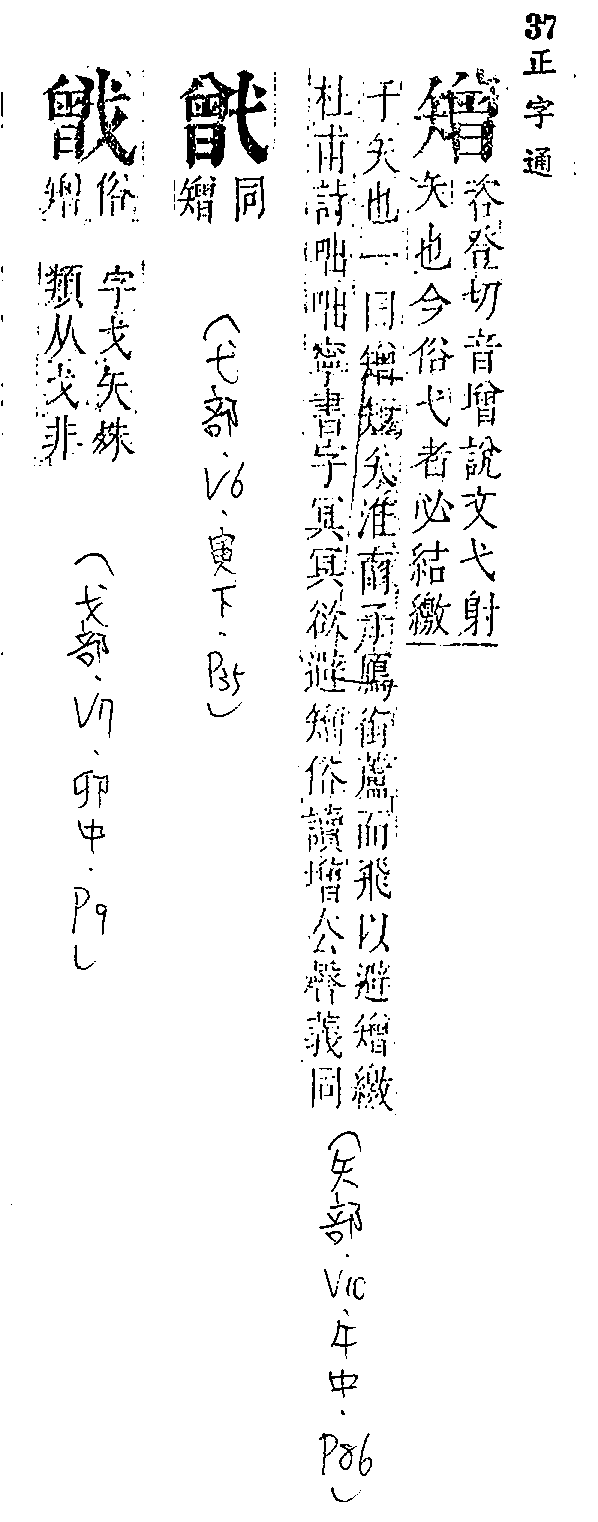 37
正字通
矰
咨登切音增說文弋射
矢也今俗弋者必結繳
于矢也一曰矰矮矢淮南子鴈銜蘆而飛以避矰繳
杜甫詩咄咄寧書字冥冥欲避矰俗讀增公聲義同
(矢部.V10.午中.P86)
同
矰
(弋部.V6.寅下.P35)
俗
矰
字戈矢殊
類从戈非
(戈部.V7.卯中.P9)